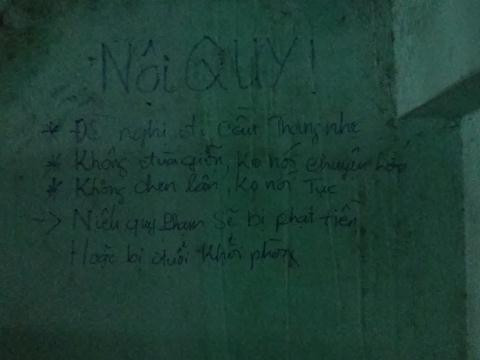 Nội QUY!
* Đề nghị đi cầu Thang nhẹ
* Không đùa giỡn, Ko nói chuyện lớn
* Không chen lấn, Ko nói Tục
-> Nếu quy Phạm sẽ bị phạt tiền
Hoặc bị đuổi khỏi phòng